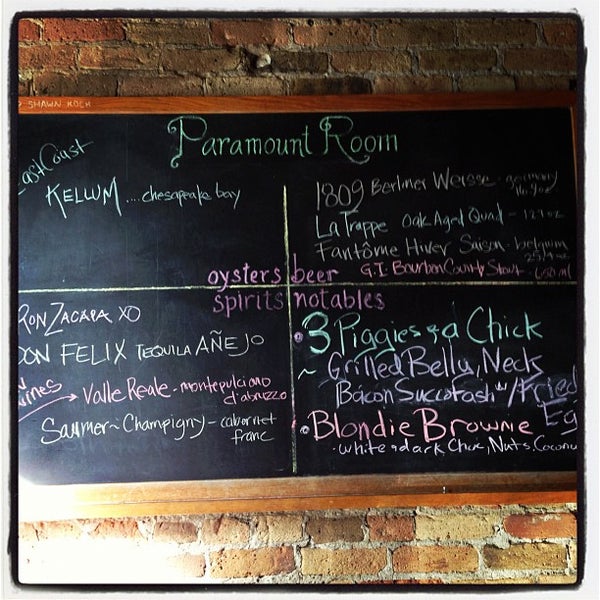 SHAWN KOCH
Paramount Room
East Coast
KELLUM....chesapeake bay
1809 Berliner Weisse - germany
16.9oz
La Trappe Oak Aged Quad - 12.7oz
Fantôme Hiver Saison - belgium
25.4oz
G.I. Bourbon County Stout - 650ml
oysters beer
spirits notables
RON ZACAPA XO
DON FELIX TEQUILA AÑEJO
Valle Reale - montepulciano
d'abruzzo
Saumer - Champigny - cabernet
franc
3 Piggies & a Chick
~ Grilled Belly, Neck
Bacon Succotash w/Fried
Eg
Blondie Brownie
· white & dark Choc, Nuts, Coconu